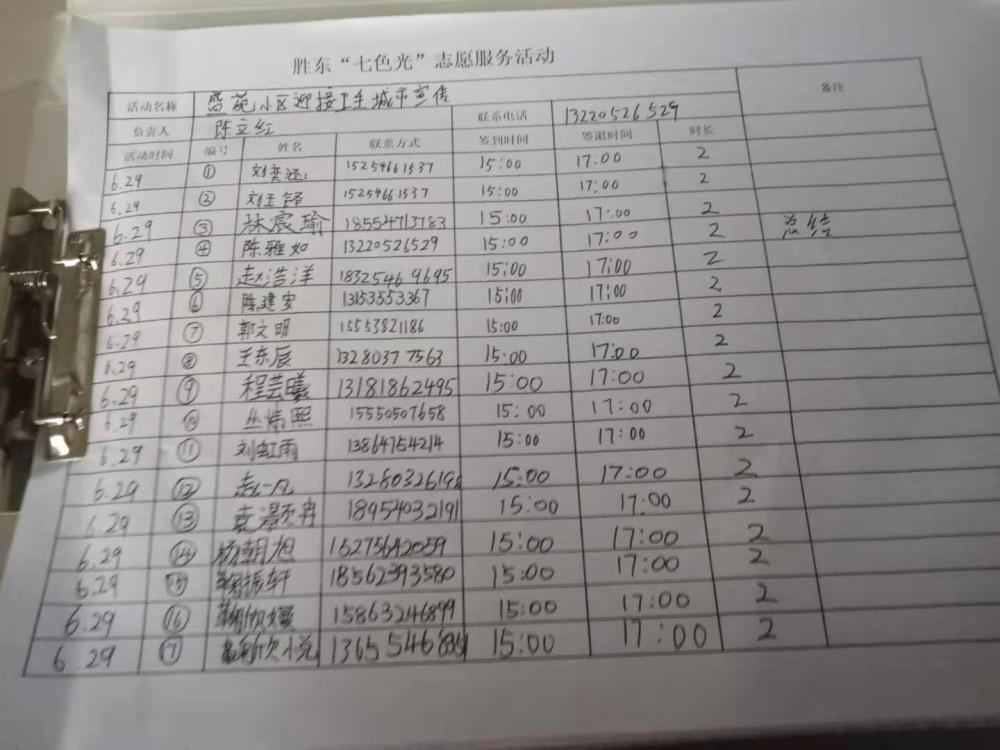 胜东“七色光”志愿服务活动
活动名称 苑小区迎接卫生城市宣传 备注
负责人 陈立红 联系电话 13220526529
活动时间 编号 姓名 联系方式 签到时间 签退时间 时长
6.29 ① 15254661537 15:00 17:00 2
6.29 ② 刘玉铎 15254661537 15:00 17:00 2
6.29 ③ 林宸瑜 18554713783 15:00 17:00 2 总结
6.29 ④ 陈雅如 13220526529 15:00 17:00 2
6.29 ⑤ 赵浩洋 18325469695 15:00 17:00 2
6.29 ⑥ 陈建安 13153553367 15:00 17:00 2
6.29 ⑦ 郭文明 15553821186 15:00 17:00 2
6.29 ⑧ 王东辰 13280377563 15:00 17:00 2
6.29 ⑨ 程芸曦 13181862495 15:00 17:00 2
6.29 ⑩ 丛炜熙 15550507658 15:00 17:00 2
6.29 ⑪ 刘虹雨 13864754214 15:00 17:00 2
6.29 ⑫ 13280326198 15:00 17:00 2
6.29 ⑬ 18954032191 15:00 17:00 2
6.29 ⑭ 杨朝旭 15275642059 15:00 17:00 2
6.29 ⑮ 鞠振轩 18562393580 15:00 17:00 2
6.29 ⑯ 15863246899 15:00 17:00 2
6.29 ⑰ 15:00 17:00 2